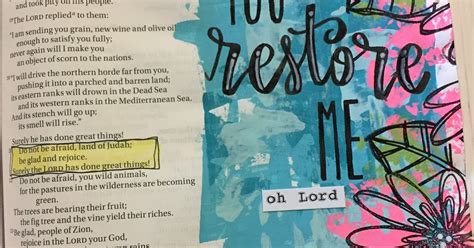 and took pity on his people.
The LORD replied to them:
"I am sending you grain, new wine and olive oil,
enough to satisfy you fully;
never again will I make you
an object of scorn to the nations.
"I will drive the northern horde far from you,
pushing it into a parched and barren land;
its eastern ranks will drown in the Dead Sea
and its western ranks in the Mediterranean Sea.
And its stench will go up;
its smell will rise."
Surely he has done great things!
Do not be afraid, land of Judah;
be glad and rejoice.
Surely the LORD has done great things!
Do not be afraid, you wild animals,
for the pastures in the wilderness are becoming
green.
The trees are bearing their fruit;
the fig tree and the vine yield their riches.
Be glad, people of Zion,
rejoice in the LORD your God,
YOU
restore
ME
oh Lord